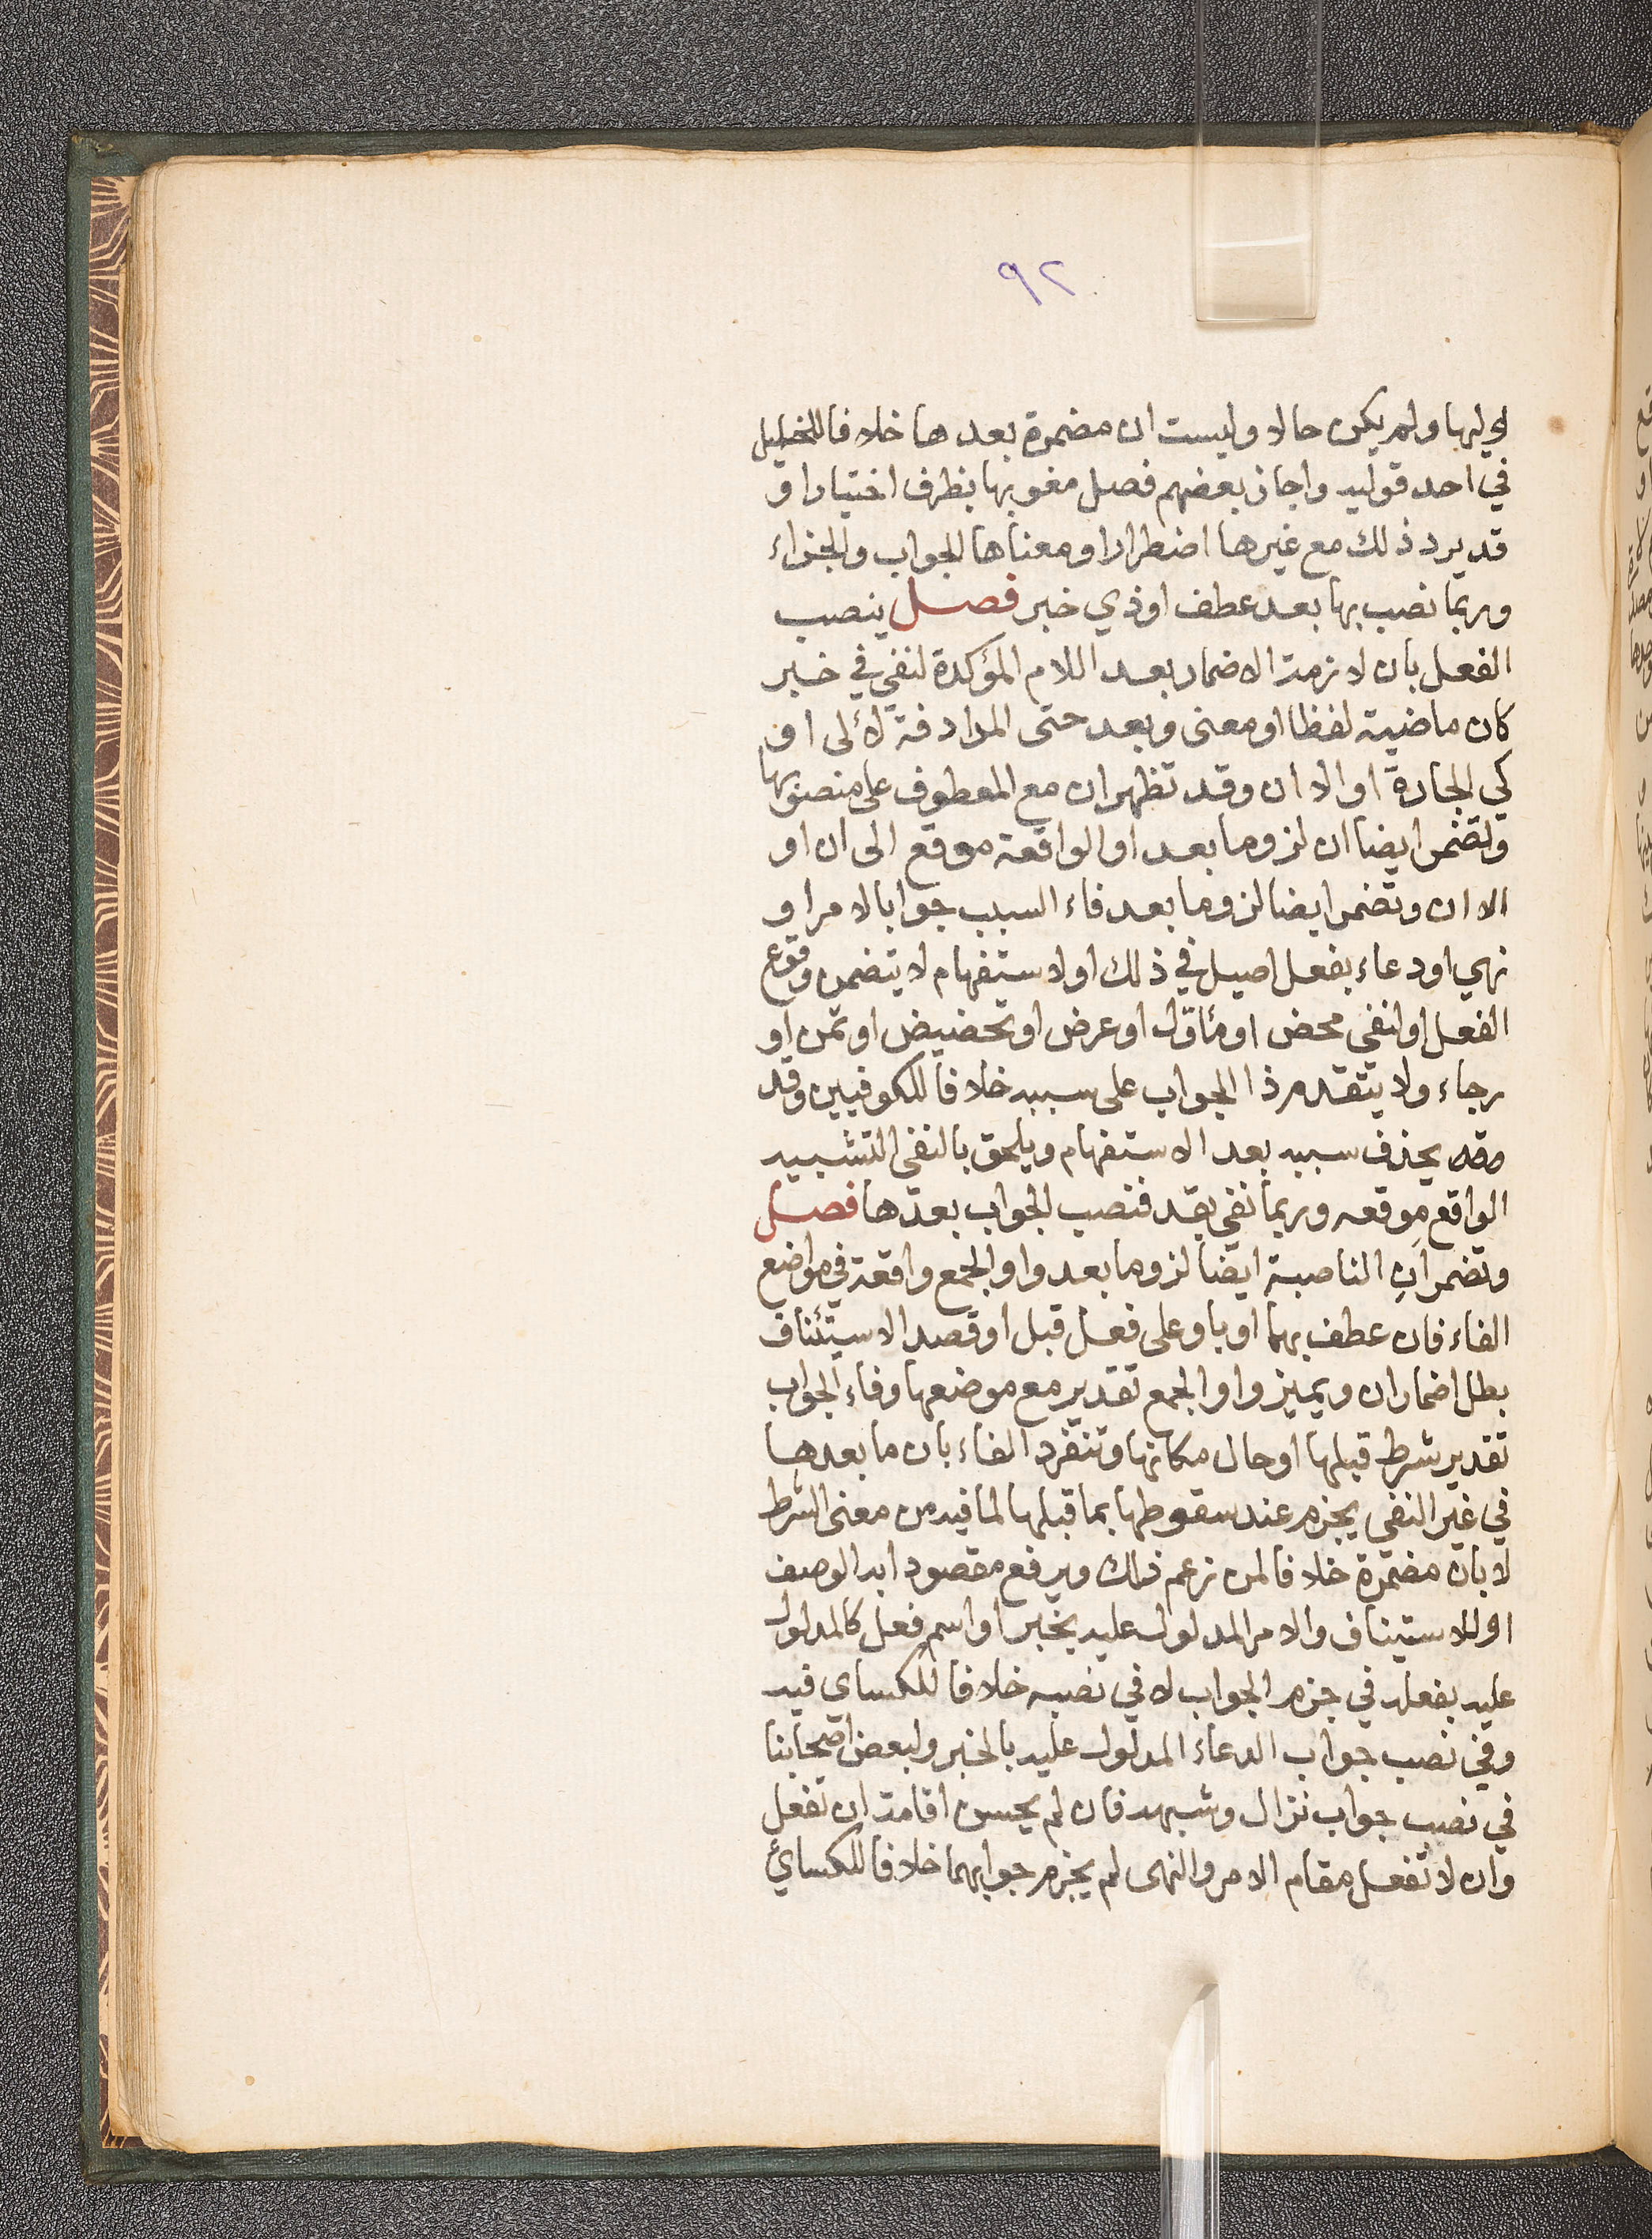 ٩٢
او ليها ولم يكن حالا وليست ان مضمرة بعدها خلافا للخليل
في احد قوليه واجاز بعضهم فصل منصوبها بظرف اختيارا و
قد يرد ذلك مع غيرها اضطرارا ومعناها الجواب والجزاء
وربما نصب بها بعد عطف او ذي خبر فصل ينصب
الفعل بان لازمة الاضمار بعد اللام المؤكدة لنفي في خبر
كان ماضية لفظا او معنى وبعد حتى المرادفة لالى او
كي الجارة او الا ان وقد تظهر ان مع المعطوف على منصوبها
وتضمر ايضا ان لزوما بعد او الواقعة موقع الى ان او
الا ان وتضمر ايضا لزوما بعد فاء السبب جوابا لامر او
نهي او دعاء بفعل اصيل في ذلك او لاستفهام لا يتضمن وقوع
الفعل او لنفي محض او مئاول او عرض او تحضيض او تمن او
رجاء ولا يتقدم ذا الجواب على سببه خلافا للكوفيين وقد
وقد يحذف سببه بعد الاستفهام ويلحق بالنفي التشبيه
الواقع موقعه وربما نفي بقد فنصب الجواب بعدها فصل
وتضمر ان الناصبة ايضا لزوما بعد واو الجمع واقعة في مواضع
الفاء فان عطف بهما او باو على فعل قبل او قصد الاستئناف
بطل اضمار ان ويميز واو الجمع تقدير مع موضعها وفاء الجواب
تقدير شرط قبلها او حال مكانها وتنفرد الفاء بان ما بعدها
في غير النفي يجزم عند سقوطها بما قبلها لما فيه من معنى الشرط
لا بان مضمرة خلافا لمن زعم ذلك ويرفع مقصودا به الوصف
او الاستيناف والامر المدلول عليه بخبر او اسم فعل كالمدلول
عليه بفعله في جزم الجواب لا في نصبه خلافا للكساي فيه
وفي نصب جواب الدعاء المدلول عليه بالخبر ولبعض اصحابنا
في نصب جواب نزال وشبهه فان لم يحسن اقامة ان تفعل
وان لا تفعل مقام الامر والنهى لم يجزم جوابهما خلافا للكسائي